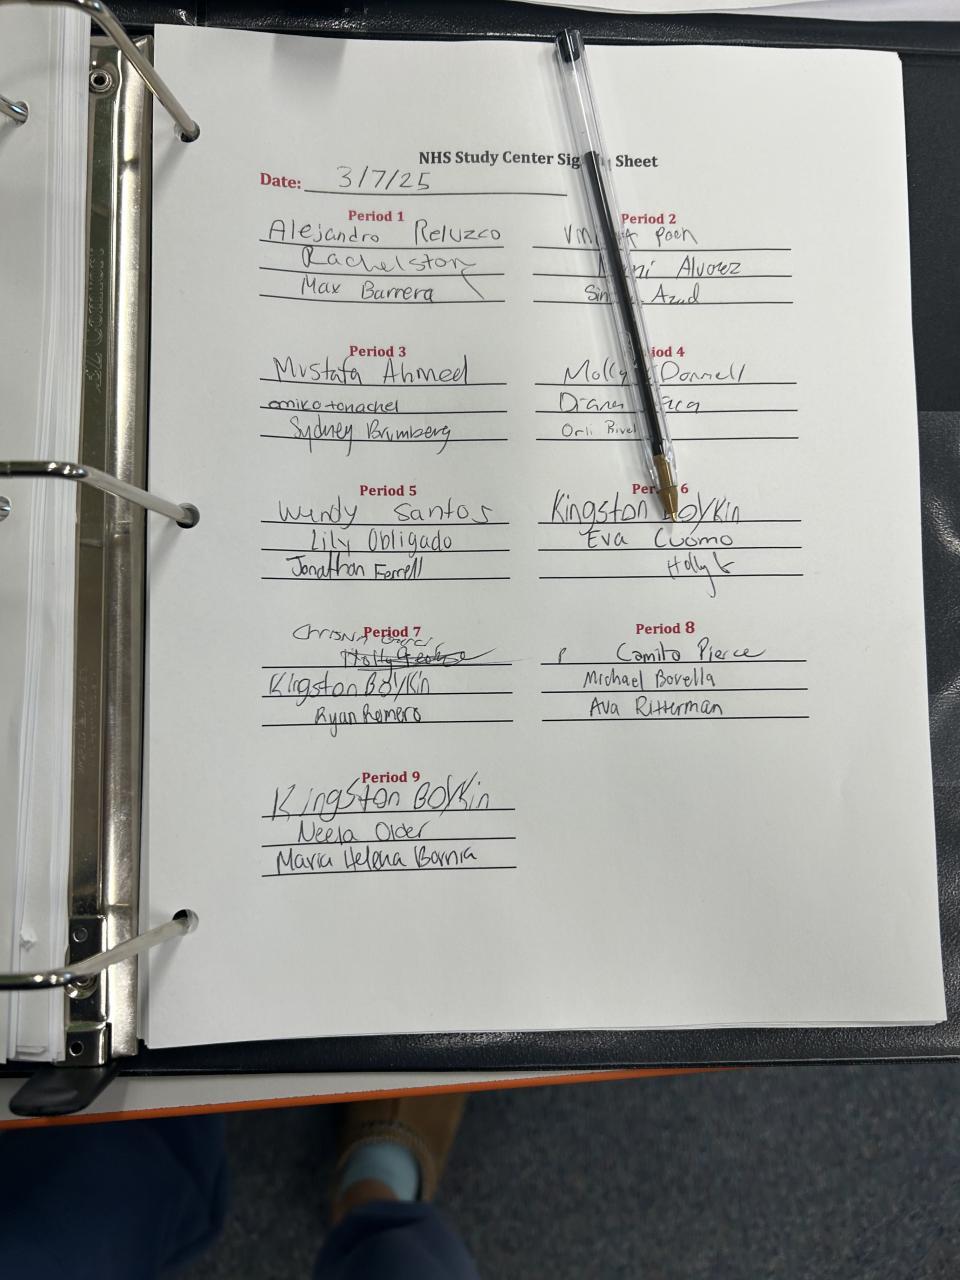 NHS Study Center Sheet
Date: 3/7/25
Period 1
Alejandro Reluzco
Rachel ston
Max Barrera
Period 2
Poch
Alvarez
Azad
Period 3
Mustafa Ahmed
amiko tonachel
Sydney Brumberg
4
Molly Donnell
Orli
Period 5
Wendy Santos
Lily Obligado
Jonathan Ferrell
6
Kingston Boykin
Eva Cuomo
Holly
Period 7
Kingston Boykin
Ryan Romero
Period 8
Camito Pierce
Michael Bovella
Ava Ritterman
Period 9
Kingston Boykin
Neela Older
Maria Helena Bornia